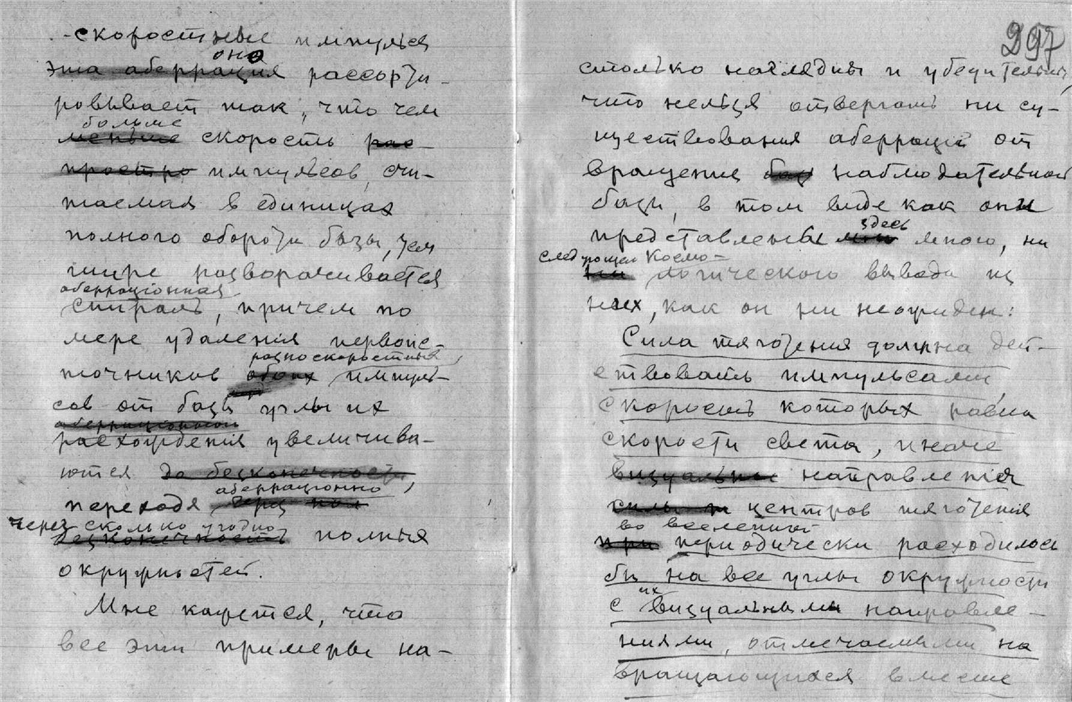 -скоростные импульсы
она
эта аберрация рассорти-
ровывает так, что чем
больше
меньше скорость рас-
простра импульсов, счи-
таемая в единицах
полного оборота базы, тем
шире разворачивается
аберраціонная
спираль, причем по
мере удаленія первоис-
разноскоростных,
точников обоих импуль-
сов от базы углы их
аберраціонного
расхожденія увеличива-
ются до безконечности,
аберраціонно
переходя через
через сколько угодно
безконечность полныя
окружностей.
Мне кажется, что
все эти примеры на-
297
столько наглядны и убедительны,
что нельзя отвергать ни су-
ществования аберраціи от
вращения базы наблюдательной
базы, в том виде как они
здесь
представлены мною, ни
следующаго космо-
ни логического вывода из
них, как он ни неожидан:
Сила тяготения должна дей-
ствовать импульсами
скорость которых равна
скорости света, иначе
визуальны направления
силы т центров тяготения
во вселенной
при периодически расходилось
бы на все углы окружности
их
с визуальными направле-
ниями, отмечаемыми на
вращающихся вместе